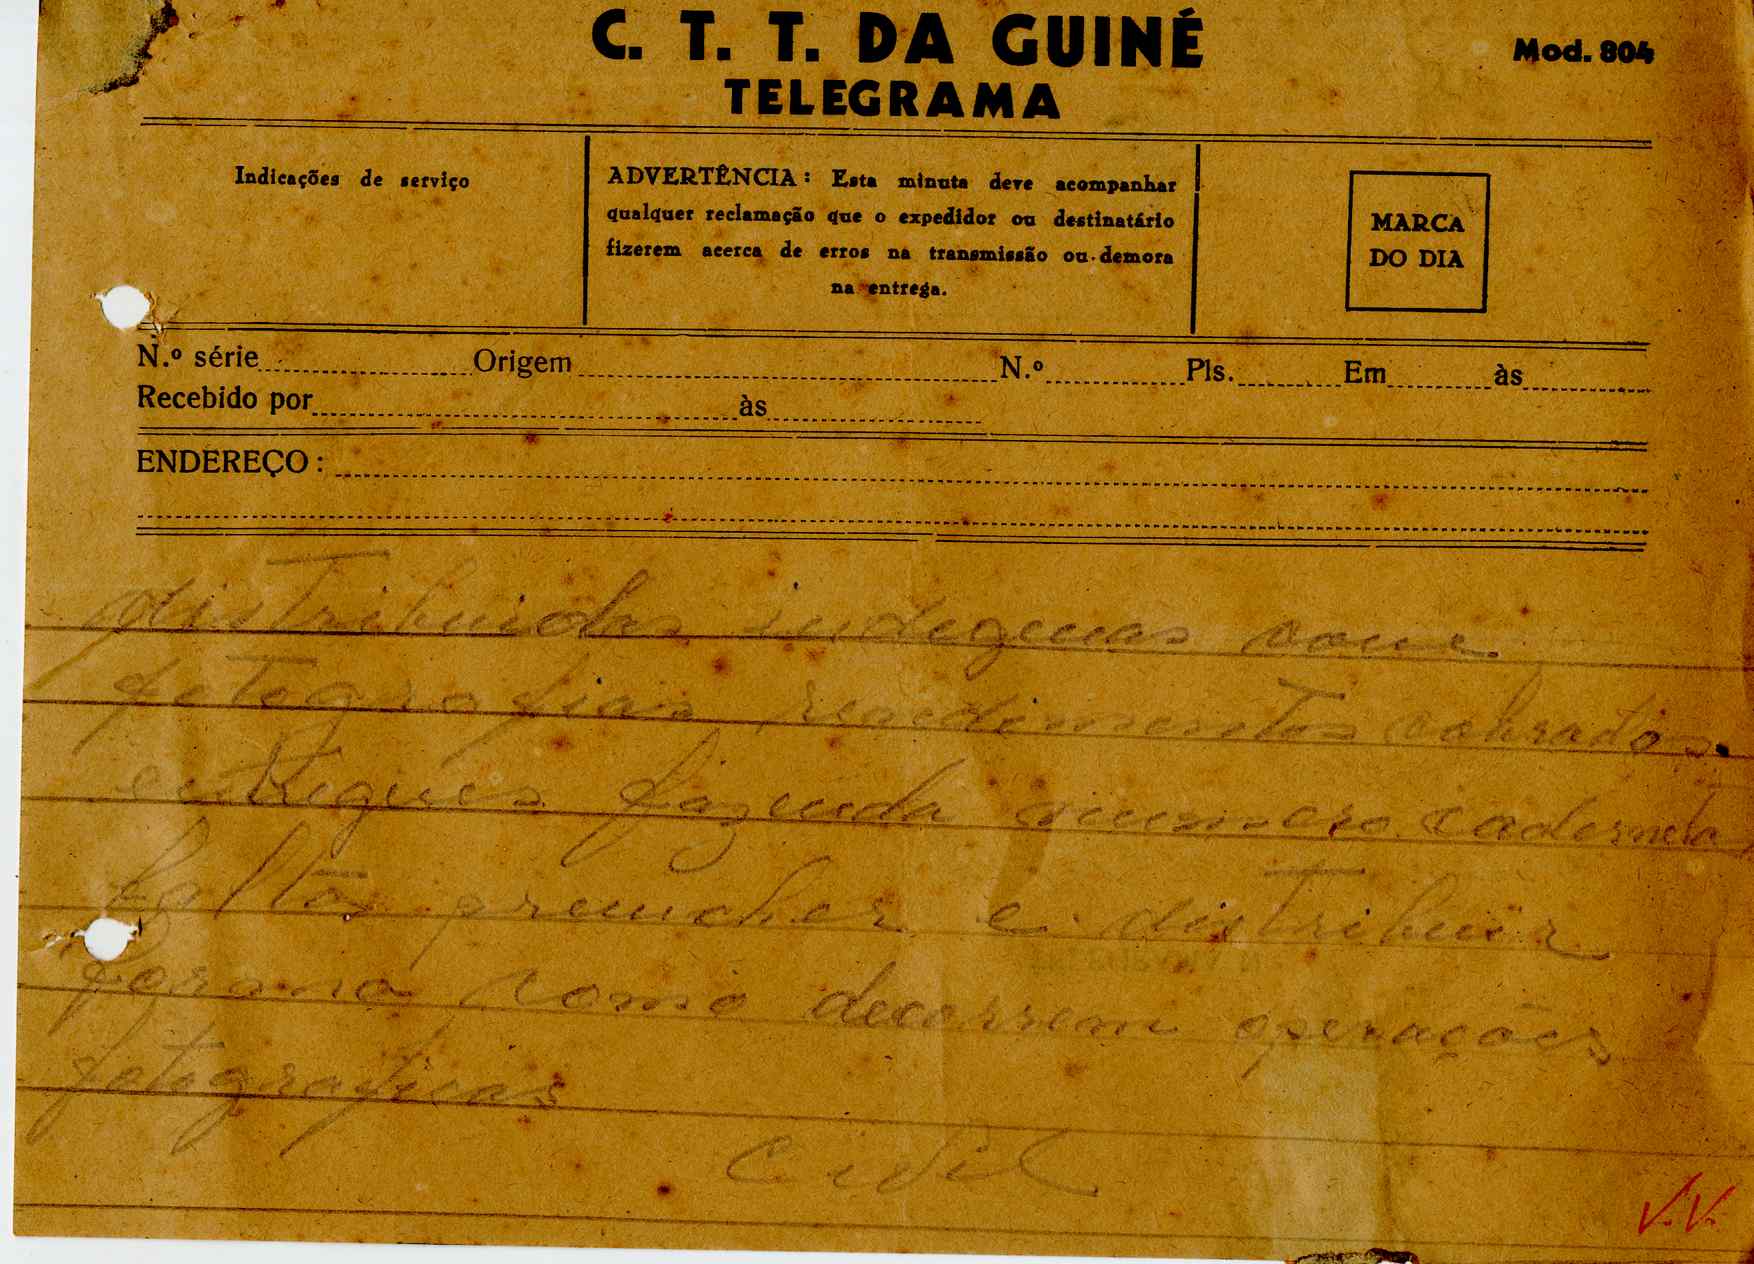 C. T. T. DA GUINÉ
Mod. 804
TELEGRAMA
Indicações de serviço
ADVERTÊNCIA: Esta minuta deve acompanhar
qualquer reclamação que o expedidor ou destinatário
fizerem acerca de erros na transmissão ou demora
na entrega.
MARCA
DO DIA
N.º série Origem N.º Pls. Em às
Recebido por às
ENDEREÇO:
distribuidas indegenas com
fotografias rendimentos cobrados
entregues fazenda numero caderneta
faltas preencher e distribuir
forma como decorrem operações
fotograficas
Civil
V.V.